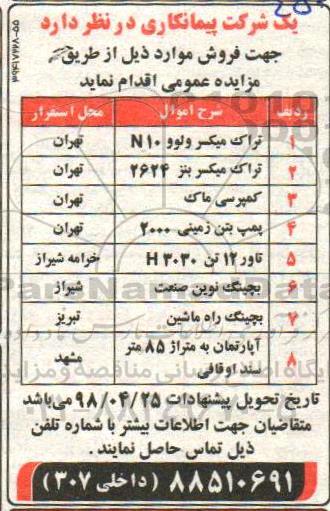 یک شرکت پیمانکاری در نظر دارد
جهت فروش موارد ذیل از طریق
مزایده عمومی اقدام نماید
ردیف شرح اموال محل استقرار
۱ تراک میکسر ولوو N10 تهران
۲ تراک میکسر بنز ۲۶۲۴ تهران
۳ کمپرسی ماک تهران
۴ پمپ بتن زمینی ۲۰۰۰ تهران
۵ تاور ۱۲ تن H ۳۰۳۰ خرامه شیراز
۶ بچینگ نوین صنعت شیراز
۷ بچینگ راه ماشین تبریز
۸ آپارتمان به متراژ ۸۵ متر سند اوقافی مشهد
تاریخ تحویل پیشنهادات ۹۸/۰۴/۲۵ می‌باشد
متقاضیان جهت اطلاعات بیشتر با شماره تلفن
ذیل تماس حاصل نمایند .
۸۸۵۱۰۶۹۱ (داخلی ۳۰۷)